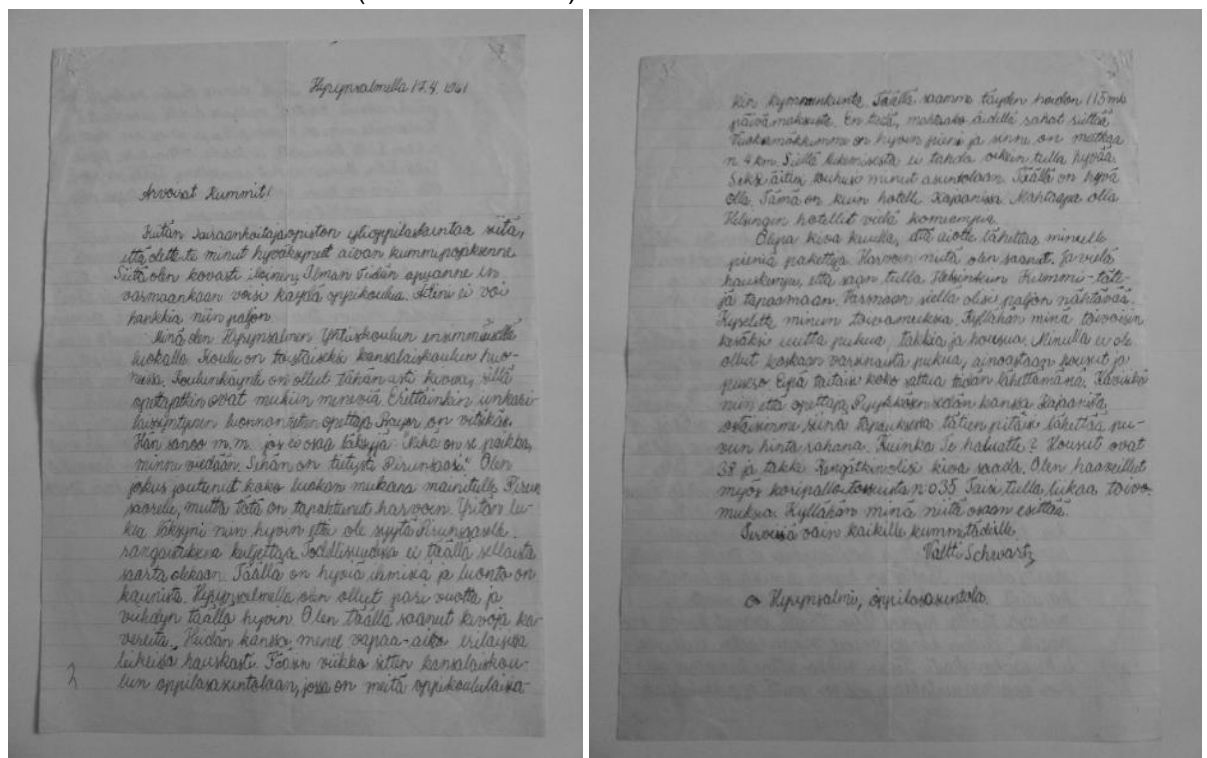 Hyrynsalmella 17.4. 1961
Arvoisat Kummit!
Kiitän sairaanhoitajaopiston ylioppilaskuntaa siitä,
että olette te minut hyväksyneet aivan kummipojaksenne
Siitä olen kovasti iloinen. Ilman Teidän apuanne en
varmaankaan voisi käydä oppikoulua. Äitini ei voi
hankkia niin paljon.
Minä olen Hyrynsalmen Yhteiskoulun ensimmäisellä
luokalla. Koulu on toistaiseksi kansalaiskoulun huo-
neissa. Koulunkäynti on ollut tähän asti kivaa, sillä
opettajatkin ovat mukiin meneviä. Erittäinkin unkari-
laissyntyinen luonnontieteen opettaja on vitsikäs.
Hän sanoo m.m. jos ei osaa läksyjä: on se paikka,
minne viedään. Sehän on tietysti Pirunsaari." Olen
joskus joutunut koko luokan mukana mainitulle Pirun
saarelle, mutta tätä on tapahtunut harvoin. Yritän lu-
kea läksyni niin hyvin ettei ole syytä Pirunsaarelle
rangaistuksena kuljettaa. Todellisuudessa ei täällä sellaista
saarta olekaan. Täällä on hyviä ihmisiä ja luonto on
kaunista. Hyrynsalmella olen ollut pari vuotta ja
viihdyn täällä hyvin. Olen täällä saanut kivoja ka-
vereita. Heidän kanssa menee vapaa-aika erilaisissa
leikeissä hauskasti. viikko sitten kansalaiskou-
lun oppilasasuntolaan, jossa on meitä oppikoululaisia-
2
kin kymmenkunta. Täällä saamme täyden hoidon 115 mk
päivämaksusta. En tiedä, mahtaako äidillä rahat riittää
on hyvin pieni ja sinne on matkaa
n. 4 km. Siellä lukemisesta ei tahdo oikein tulla hyvää
Siksi äitini minut asuntolaan. Täällä on hyvä
olla. Tämä on kuin hotelli Kajaanissa. Mahtaapa olla
Helsingin hotellit vielä komeampia.
Olipa kiva kuulla, että aiotte lähettää minulle
pieniä paketteja. Harvoin niitä olen saanut. Ja vielä
hauskempi, että saan tulla Helsinkiin Kummi-täte-
jä tapaamaan. Varmaan siellä olisi paljon nähtävää.
Kyselette minun toivomuksia. Kyllähän minä toivoisin
kesäksi uutta pukua, takkia ja housua. Minulla ei ole
ollut koskaan varsinaista pukua, ainoastaan housut ja
pusero. Eipä taitaisi koko sattua teidän lähettämänä. Kävisikö
niin että opettaja Pyykkösen sedän kanssa Kajaanista
ostaisimme siinä tapauksessa tätien pitäisi lähettää pu-
vun hinta rahana. Kuinka Te haluatte? Housut ovat
38 ja takki Kengätkin olisi kiva saada. Olen haaveillut
myös koripallotossuista n:o 35. Taisi tulla liikaa toivo-
muksia. Kyllähän minä niitä osaan esittää.
Terveisiä vain kaikille kummitädeille
Valtti Schwartz
Hyrynsalmi, oppilasasuntola.